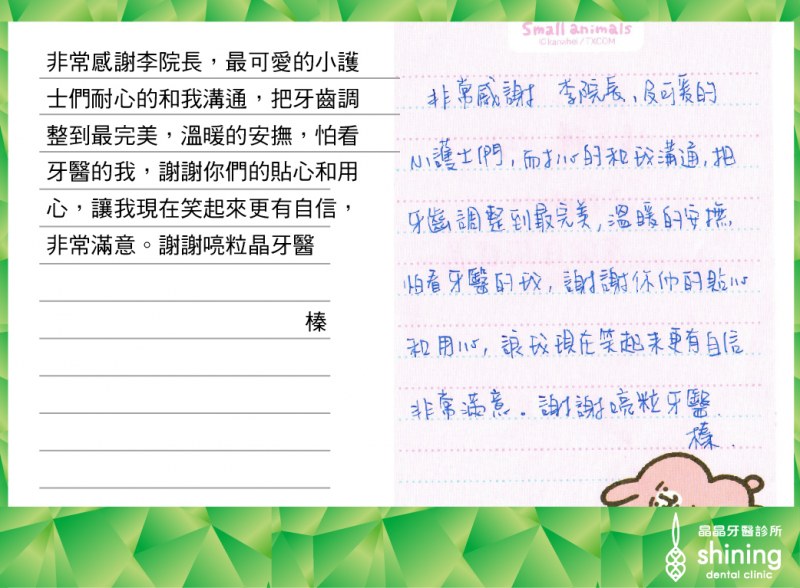 非常感謝李院長，最可愛的小護
士們耐心的和我溝通，把牙齒調
整到最完美，溫暖的安撫，怕看
牙醫的我，謝謝你們的貼心和用
心，讓我現在笑起來更有自信，
非常滿意。謝謝喨粒晶牙醫
榛
Small animals
©kanahei / TXCOM
非常感謝 李院長、及可愛的
小護士們，耐心的和我溝通，把
牙齒調整到最完美，溫暖的安撫，
怕看牙醫的我，謝謝你們的貼心
和用心，讓我現在笑起來更有自信
非常滿意。謝謝喨粒牙醫
榛
晶晶牙醫診所
shining
dental clinic